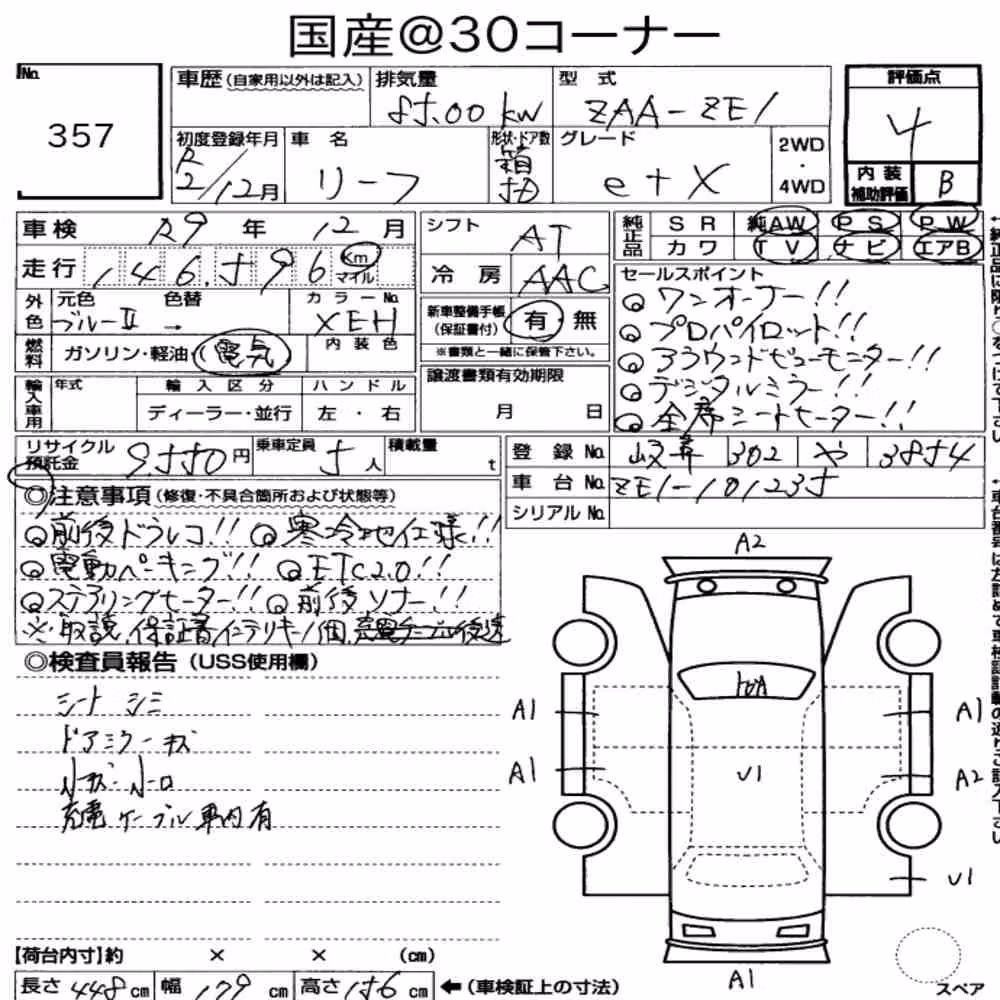 国産@30コーナー
No. 357
車歴(自家用以外は記入) 排気量 85.00 kw 型式 ZAA-ZE1
評価点 4
内装補助評価 B
初度登録年月 R2/12月 車名 リーフ 形状・ドア数 箱 5D グレード e+X 2WD・4WD
車検 R9年 12月
走行 146,596 Km マイル
シフト AT
冷房 AAC
純正品 SR 純AW PS PW
カワ TV ナビ エアB
外色 元色 ブルーII 色替 → カラーNo. XEH
内装色
燃料 ガソリン・軽油 電気
新車整備手帳(保証書付) 有・無
※書類と一緒に保管下さい。
セールスポイント
◎ワンオーナー!!
◎プロパイロット!!
◎アラウンドビューモニター!!
◎デジタルミラー!!
◎全席シートヒーター!!
輸入車用 年式 輸入区分 ハンドル
ディーラー・並行 左・右
譲渡書類有効期限
月 日
リサイクル預託金 9,550円 乗車定員 5人 積載量 t
登録No. 岐阜 302 や 3854
車台No. ZE1-101235
シリアルNo.
◎注意事項(修復・不具合箇所および状態等)
◎前後ドラレコ!! ◎寒冷地仕様!!
◎電動パーキング!! ◎ETC2.0!!
◎ステアリングヒーター!! ◎前後ソナー!!
※取説、保証書インテリキー1個、充電ケーブル後送
◎検査員報告(USS使用欄)
シート シミ
ドアミラーキズ
小キズ・小凹
充電ケーブル車内有
A2
A1
A1
A1
A2
U1
U1
A1
スペア
【荷台内寸】約 × × (cm)
長さ 448cm 幅 179cm 高さ 156cm ←(車検証上の寸法)